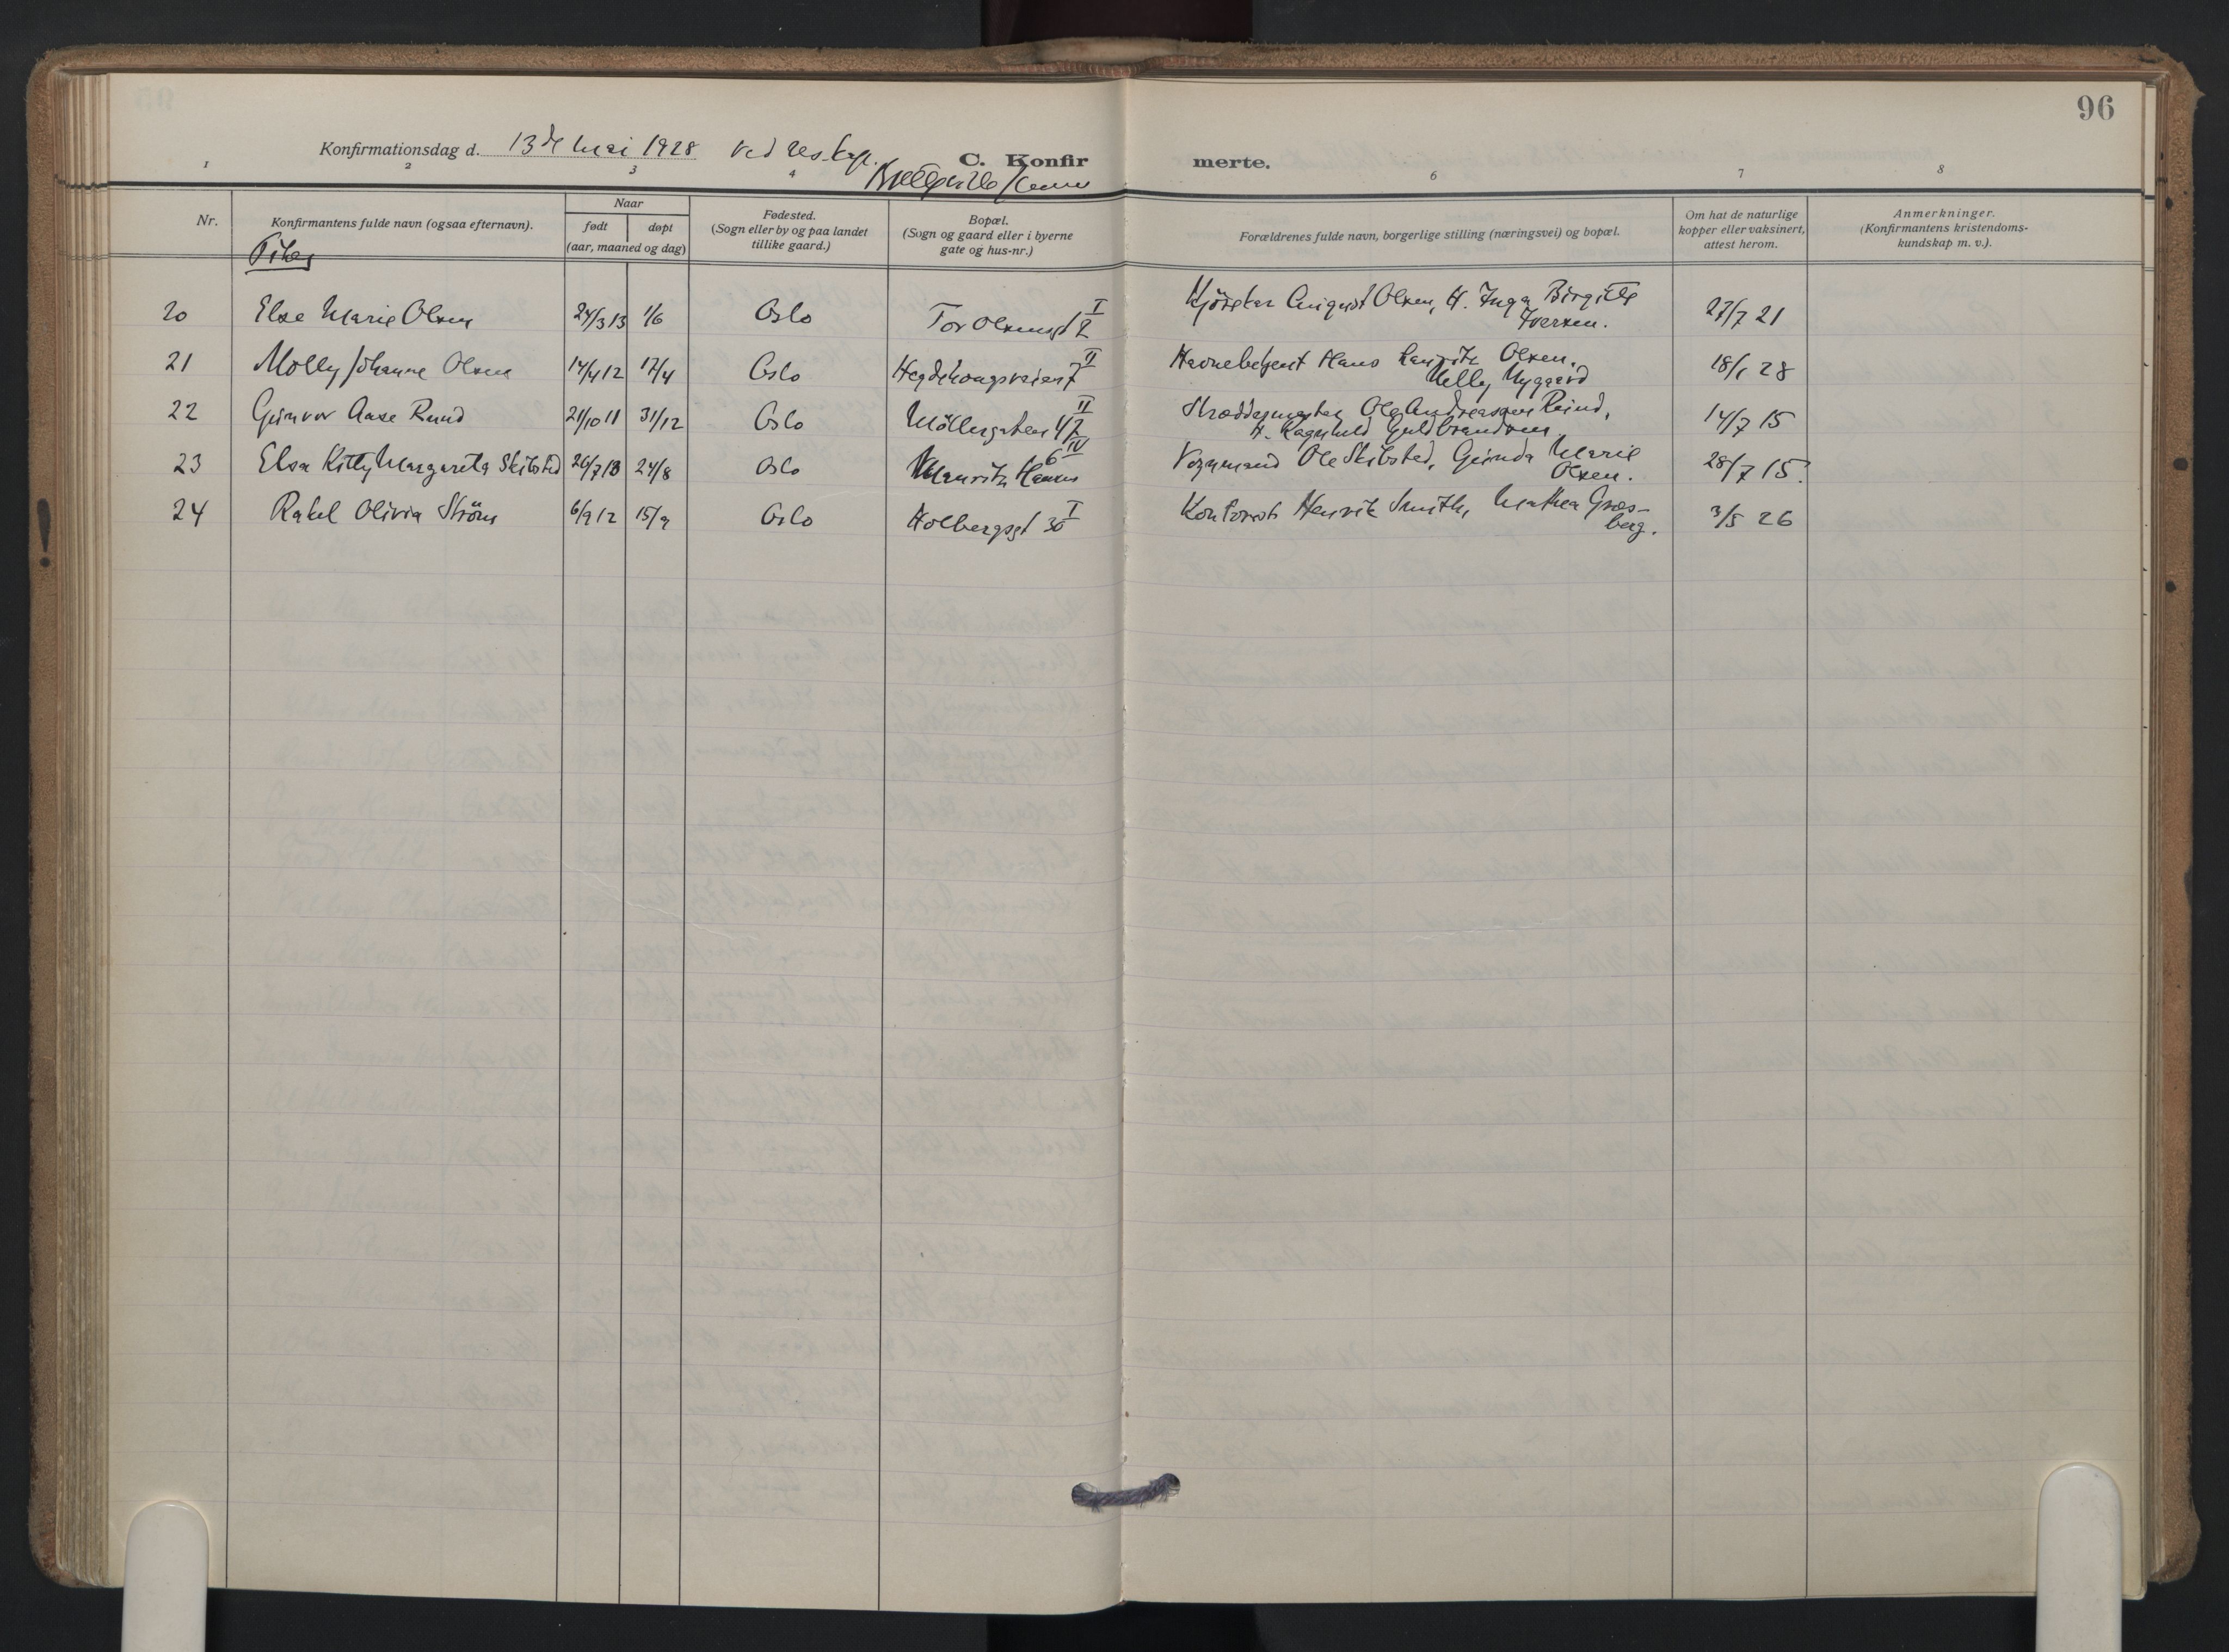 96
Konfirmationsdag d. 13de Mai 1928 ved res. kap.
C. Konfirmerte.
1 2 3 4 6 7 8
Nr.
Konfirmantens fulde navn (ogsaa efternavn).
Piker
Naar
født døpt
(aar, maaned og dag)
Fødested.
(Sogn eller by og paa landet
tillike gaard.)
Bopæl.
(Sogn og gaard eller i byerne
gate og hus-nr.)
Forældrenes fulde navn, borgerlige stilling (næringsvei) og bopæl.
Om hat de naturlige
kopper eller vaksinert,
attest herom.
Anmerkninger.
(Konfirmantens kristendoms-
kundskap m. v.).
20 Else Marie Olsen 24/3 13 1/6 Oslo Tor Olsensgt 2 I August Olsen, H. Inga Birgitte
Iversen. 27/7 21
21 Molly Johanne Olsen 14/4 12 17/4 Oslo Hegdehaugsveien 7 II Havnebetjent Hans Lauritz Olsen.
Nelly Nygaard 18/1 28
22 Gunvor Aase Rund 21/10 11 31/12 Oslo Möllergaten 47 II Skræddermester Ole Andreassen Rund,
H. Ragnhild Guldbrandsen 14/7 15
23 Elsa Kitty Margareta Skibsted 26/7 13 24/8 Oslo Mauritz Hansens 6 IV Vognmand Ole Skibsted, Gunda Marie
Olsen. 28/7 15.
24 Rakel Olivia Ström 6/9 12 15/9 Oslo Holbergsgt 30 I Kontorist Henrik Smith, Mathea Græs-
berg. 3/5 26